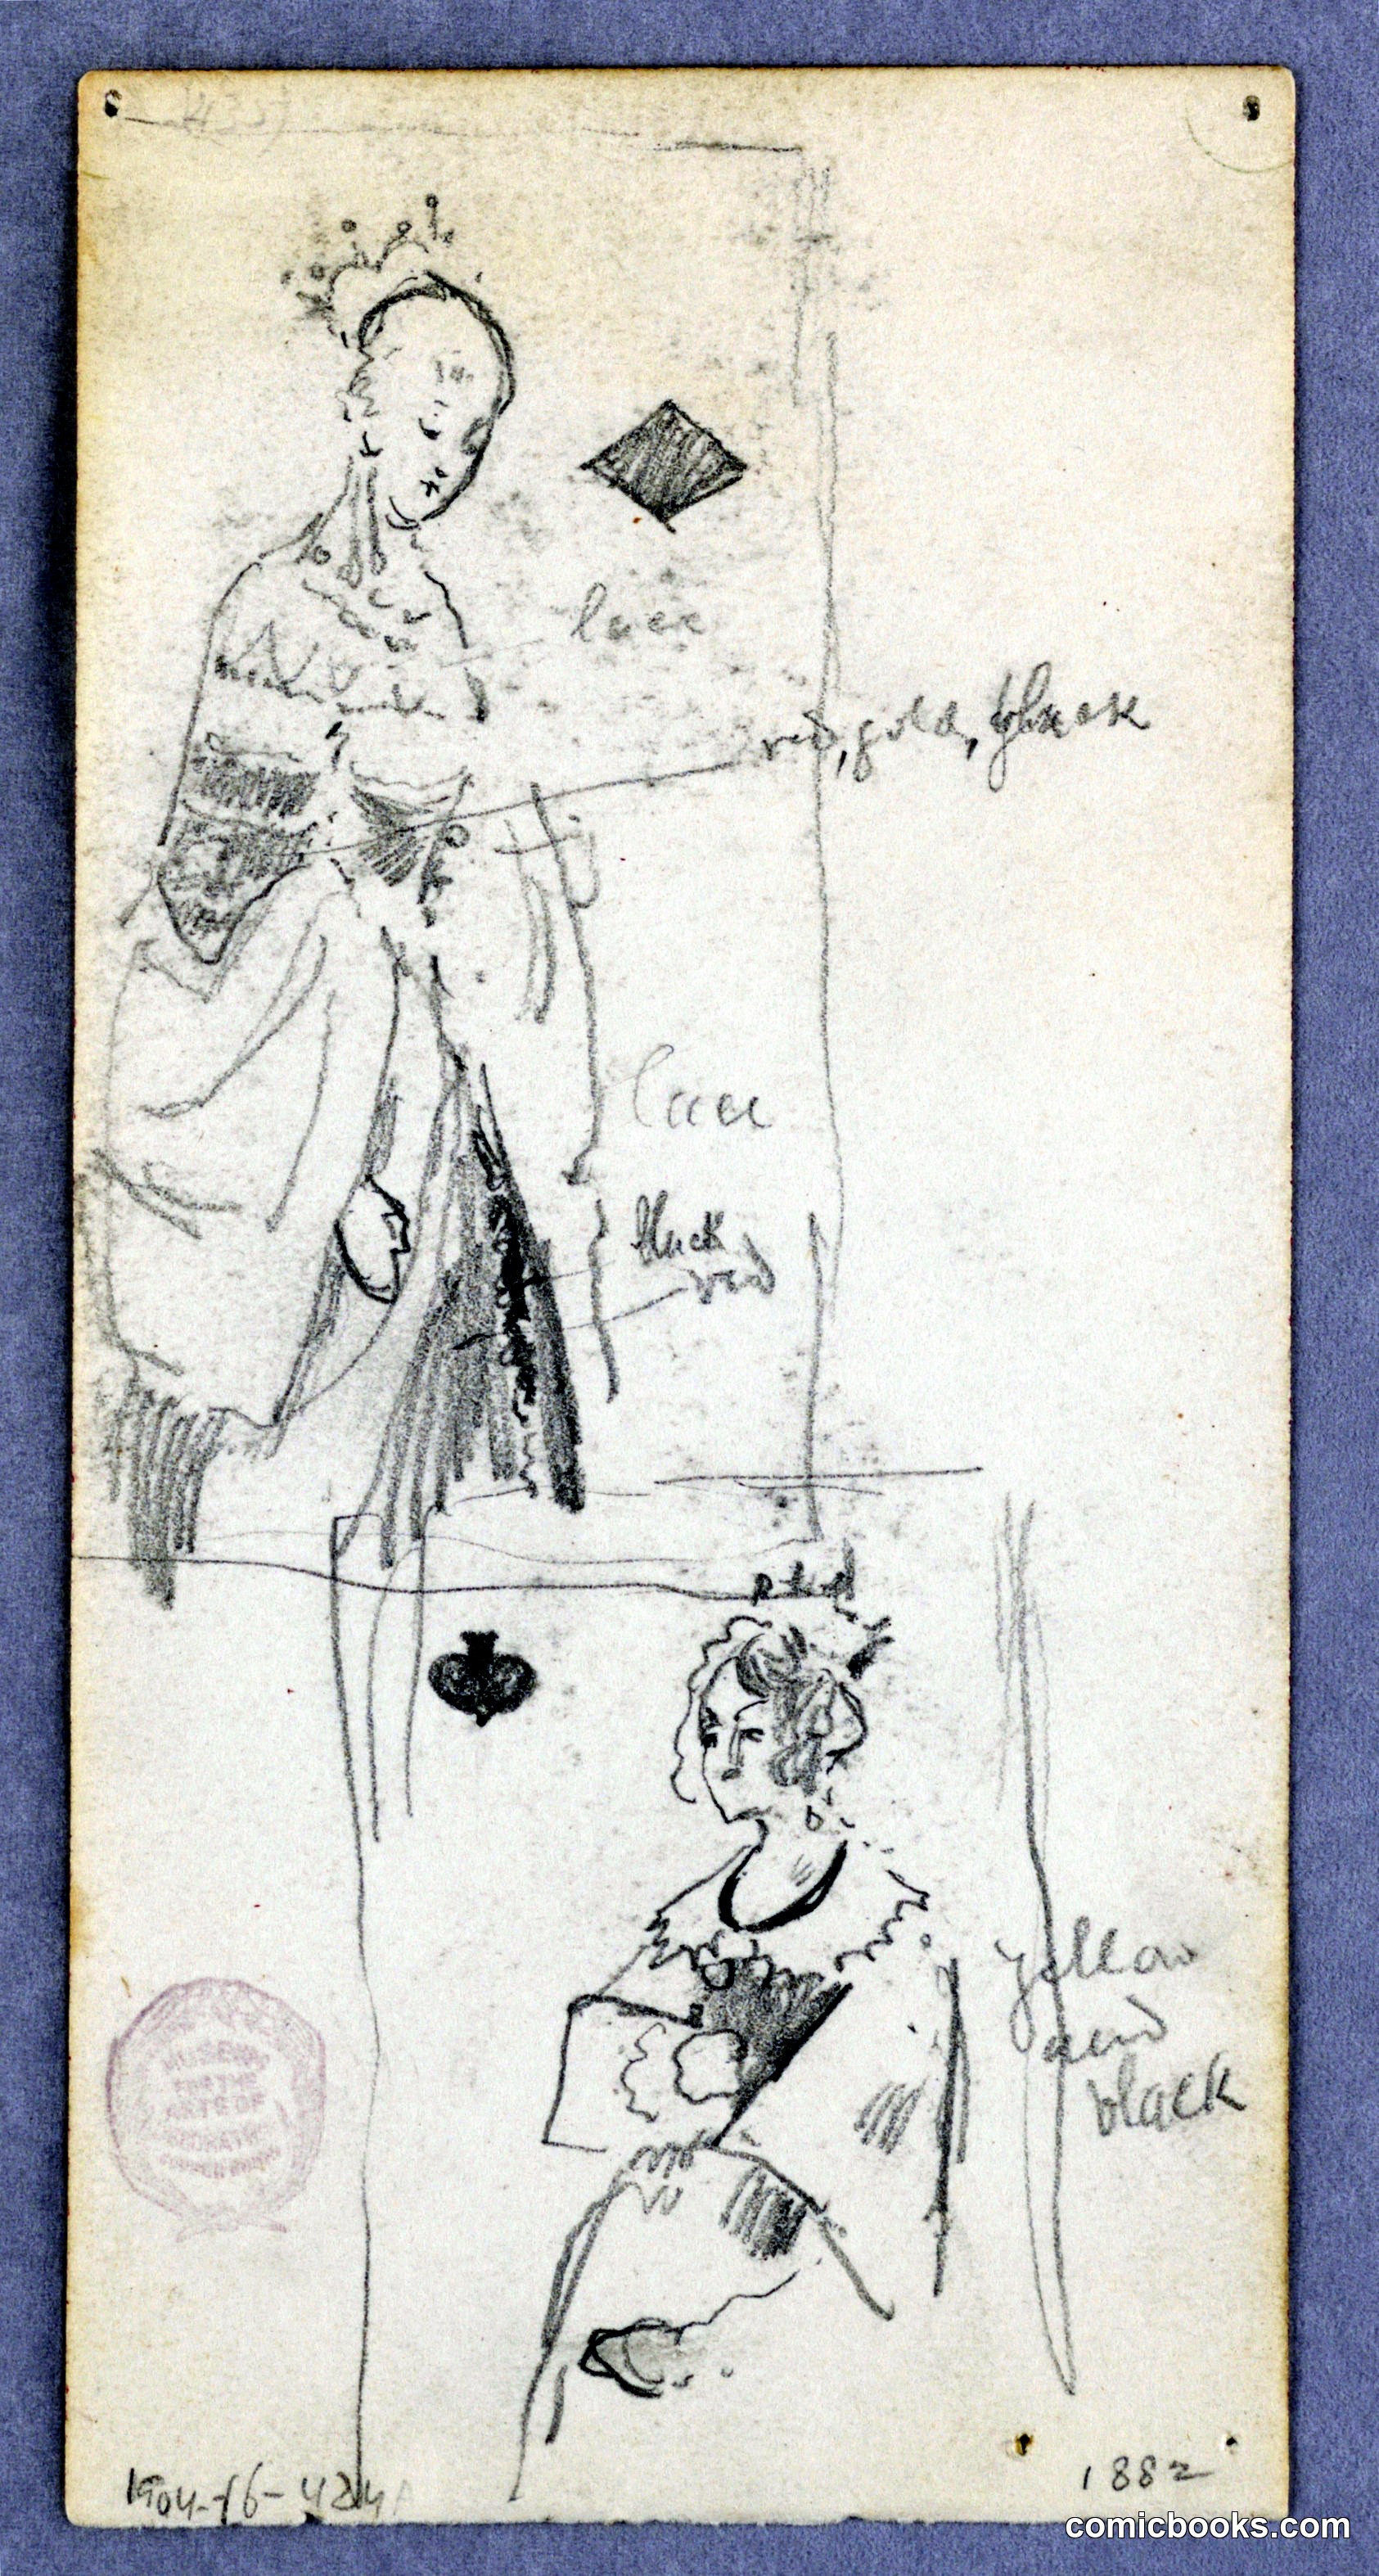 lace
red, gold, black
lace
black
red
yellow
and
black
MUSEUM
FOR THE
ARTS OF
DECORATION
COOPER UNION
1882
comicbooks.com